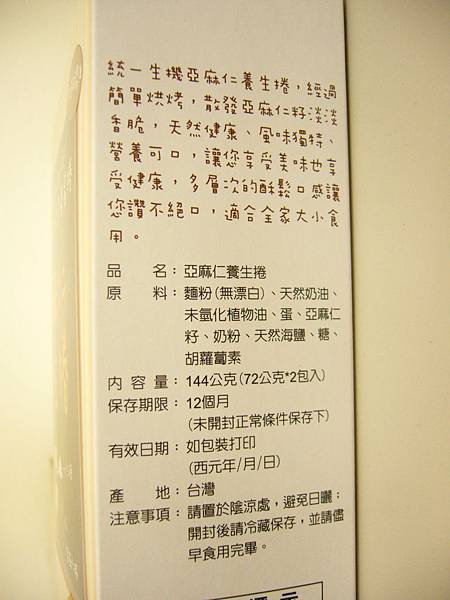 統一生機亞麻仁養生捲，經過
簡單烘烤，散發亞麻仁籽淡淡
香脆，天然健康、風味獨特、
營養可口，讓您享受美味也享
受健康，多層次的酥鬆口感讓
您讚不絕口，適合全家大小食
用。
品　　名：亞麻仁養生捲
原　　料：麵粉(無漂白)、天然奶油、
未氫化植物油、蛋、亞麻仁
籽、奶粉、天然海鹽、糖、
胡蘿蔔素
內 容 量：144公克(72公克*2包入)
保存期限：12個月
(未開封正常條件保存下)
有效日期：如包裝打印
(西元年/月/日)
產　　地：台灣
注意事項：請置於陰涼處，避免日曬；
開封後請冷藏保存，並請儘
早食用完畢。